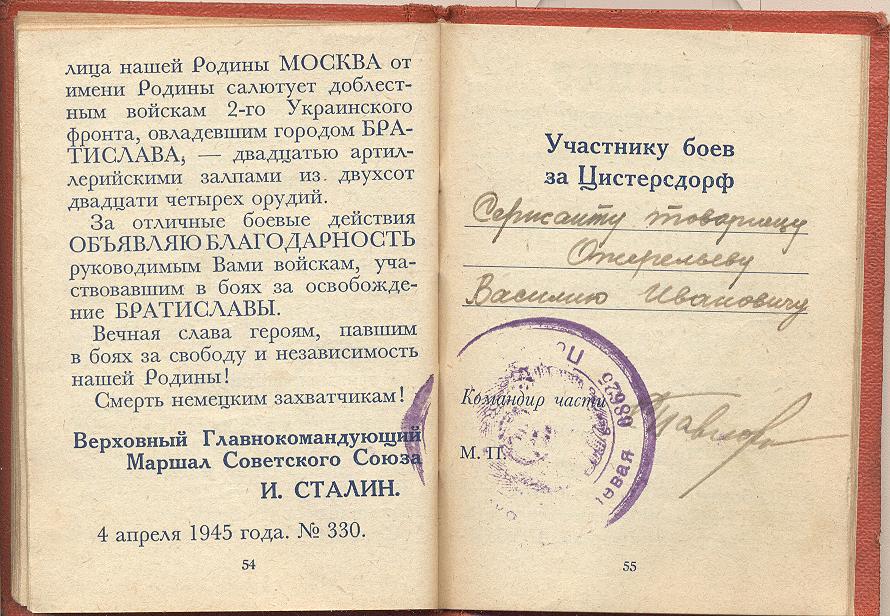 лица нашей Родины МОСКВА от
имени Родины салютует доблест-
ным войскам 2-го Украинского
фронта, овладевшим городом БРА-
ТИСЛАВА, — двадцатью артил-
лерийскими залпами из двухсот
двадцати четырех орудий.
За отличные боевые действия
ОБЪЯВЛЯЮ БЛАГОДАРНОСТЬ
руководимым Вами войскам, уча-
ствовавшим в боях за освобожде-
ние БРАТИСЛАВЫ.
Вечная слава героям, павшим
в боях за свободу и независимость
нашей Родины!
Смерть немецким захватчикам!
Верховный Главнокомандующий
Маршал Советского Союза
И. СТАЛИН.
4 апреля 1945 года. № 330.
54
Участнику боев
за Цистерсдорф
Сержанту товарищу
Ожерельеву
Василию Ивановичу
Командир части
М. П.
55